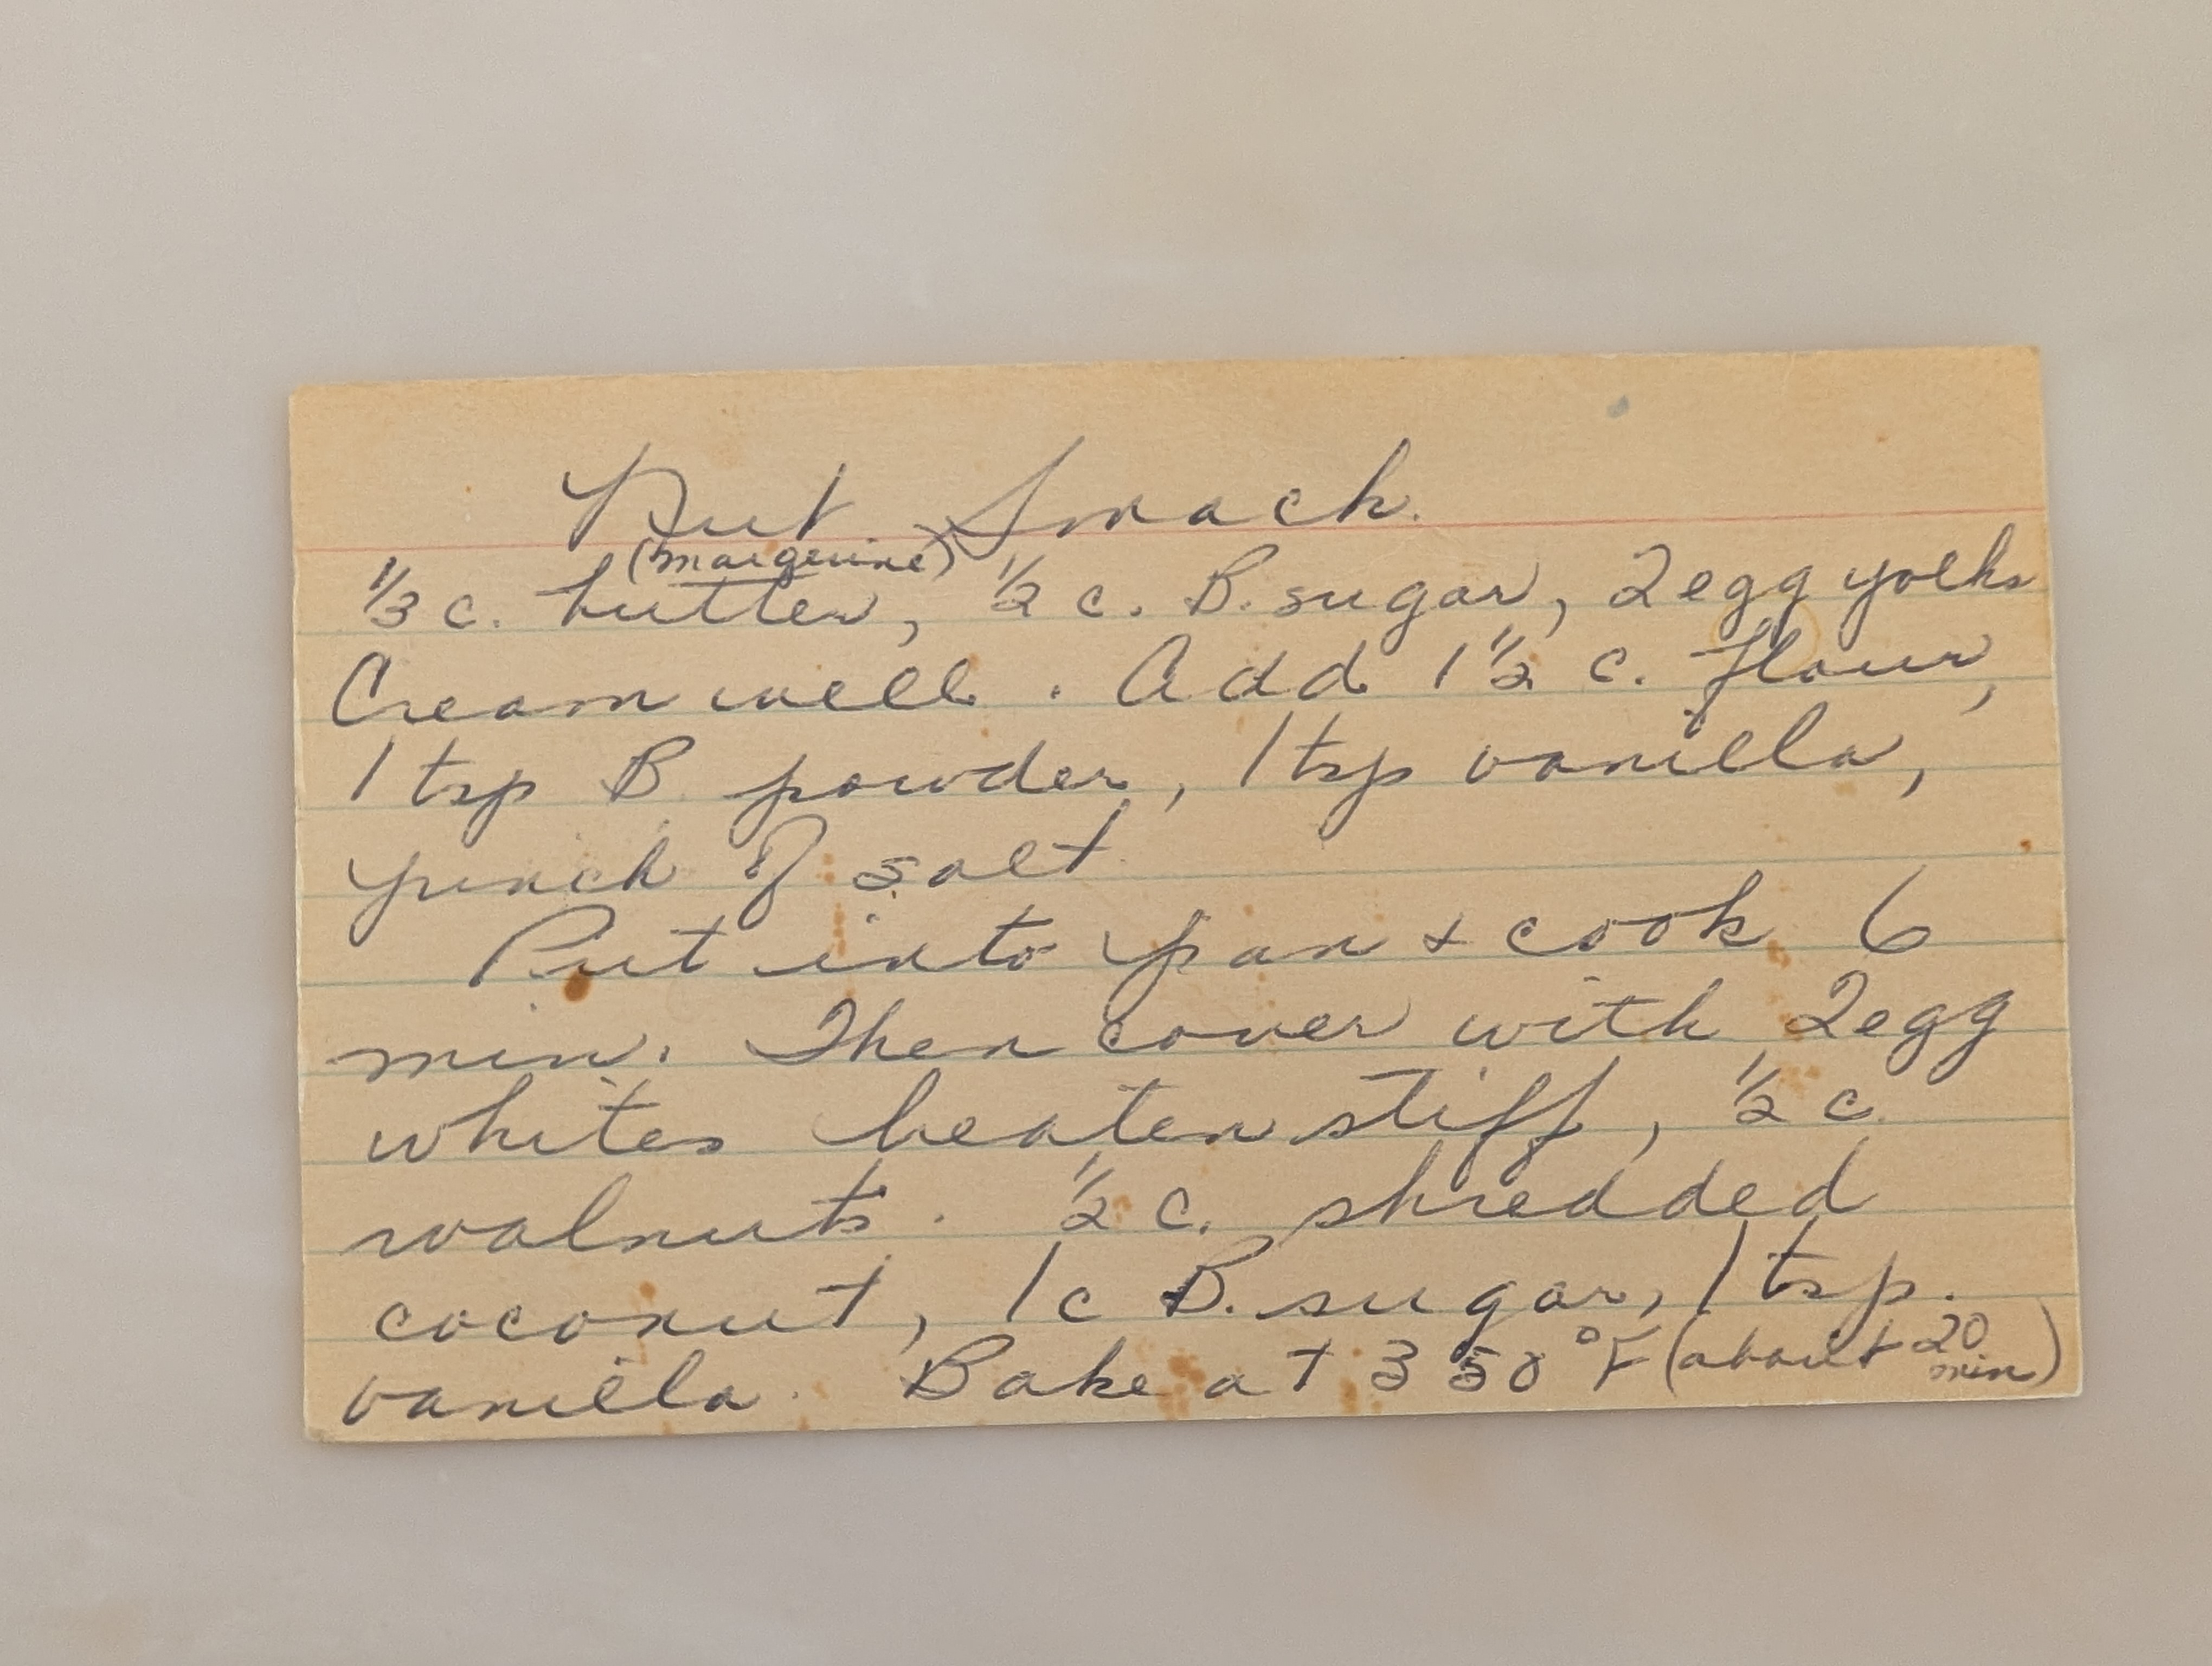 Nut Smack.
(margerine)
1/3 c. butter, 1/2 c. B. sugar, 2 egg yolks
Cream well. Add 1 1/2 c. flour,
1 tsp B. powder, 1 tsp vanilla,
pinch of salt.
Put into pan & cook 6
min. Then cover with 2 egg
whites beaten stiff, 1/2 c.
walnuts. 1/2 c. shredded
coconut, 1 c B. sugar, 1 tsp.
vanilla. Bake at 350°F (about 20 min)